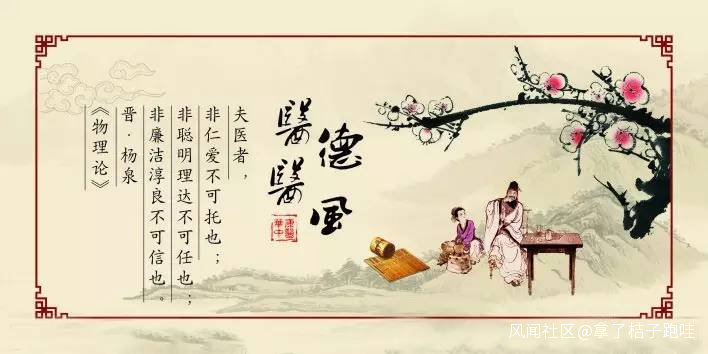 醫德
醫風
夫医者，
非仁爱不可托也；
非聪明理达不可任也；
非廉洁淳良不可信也。
晋·杨泉
《物理论》
风闻社区@拿了桔子跑哇